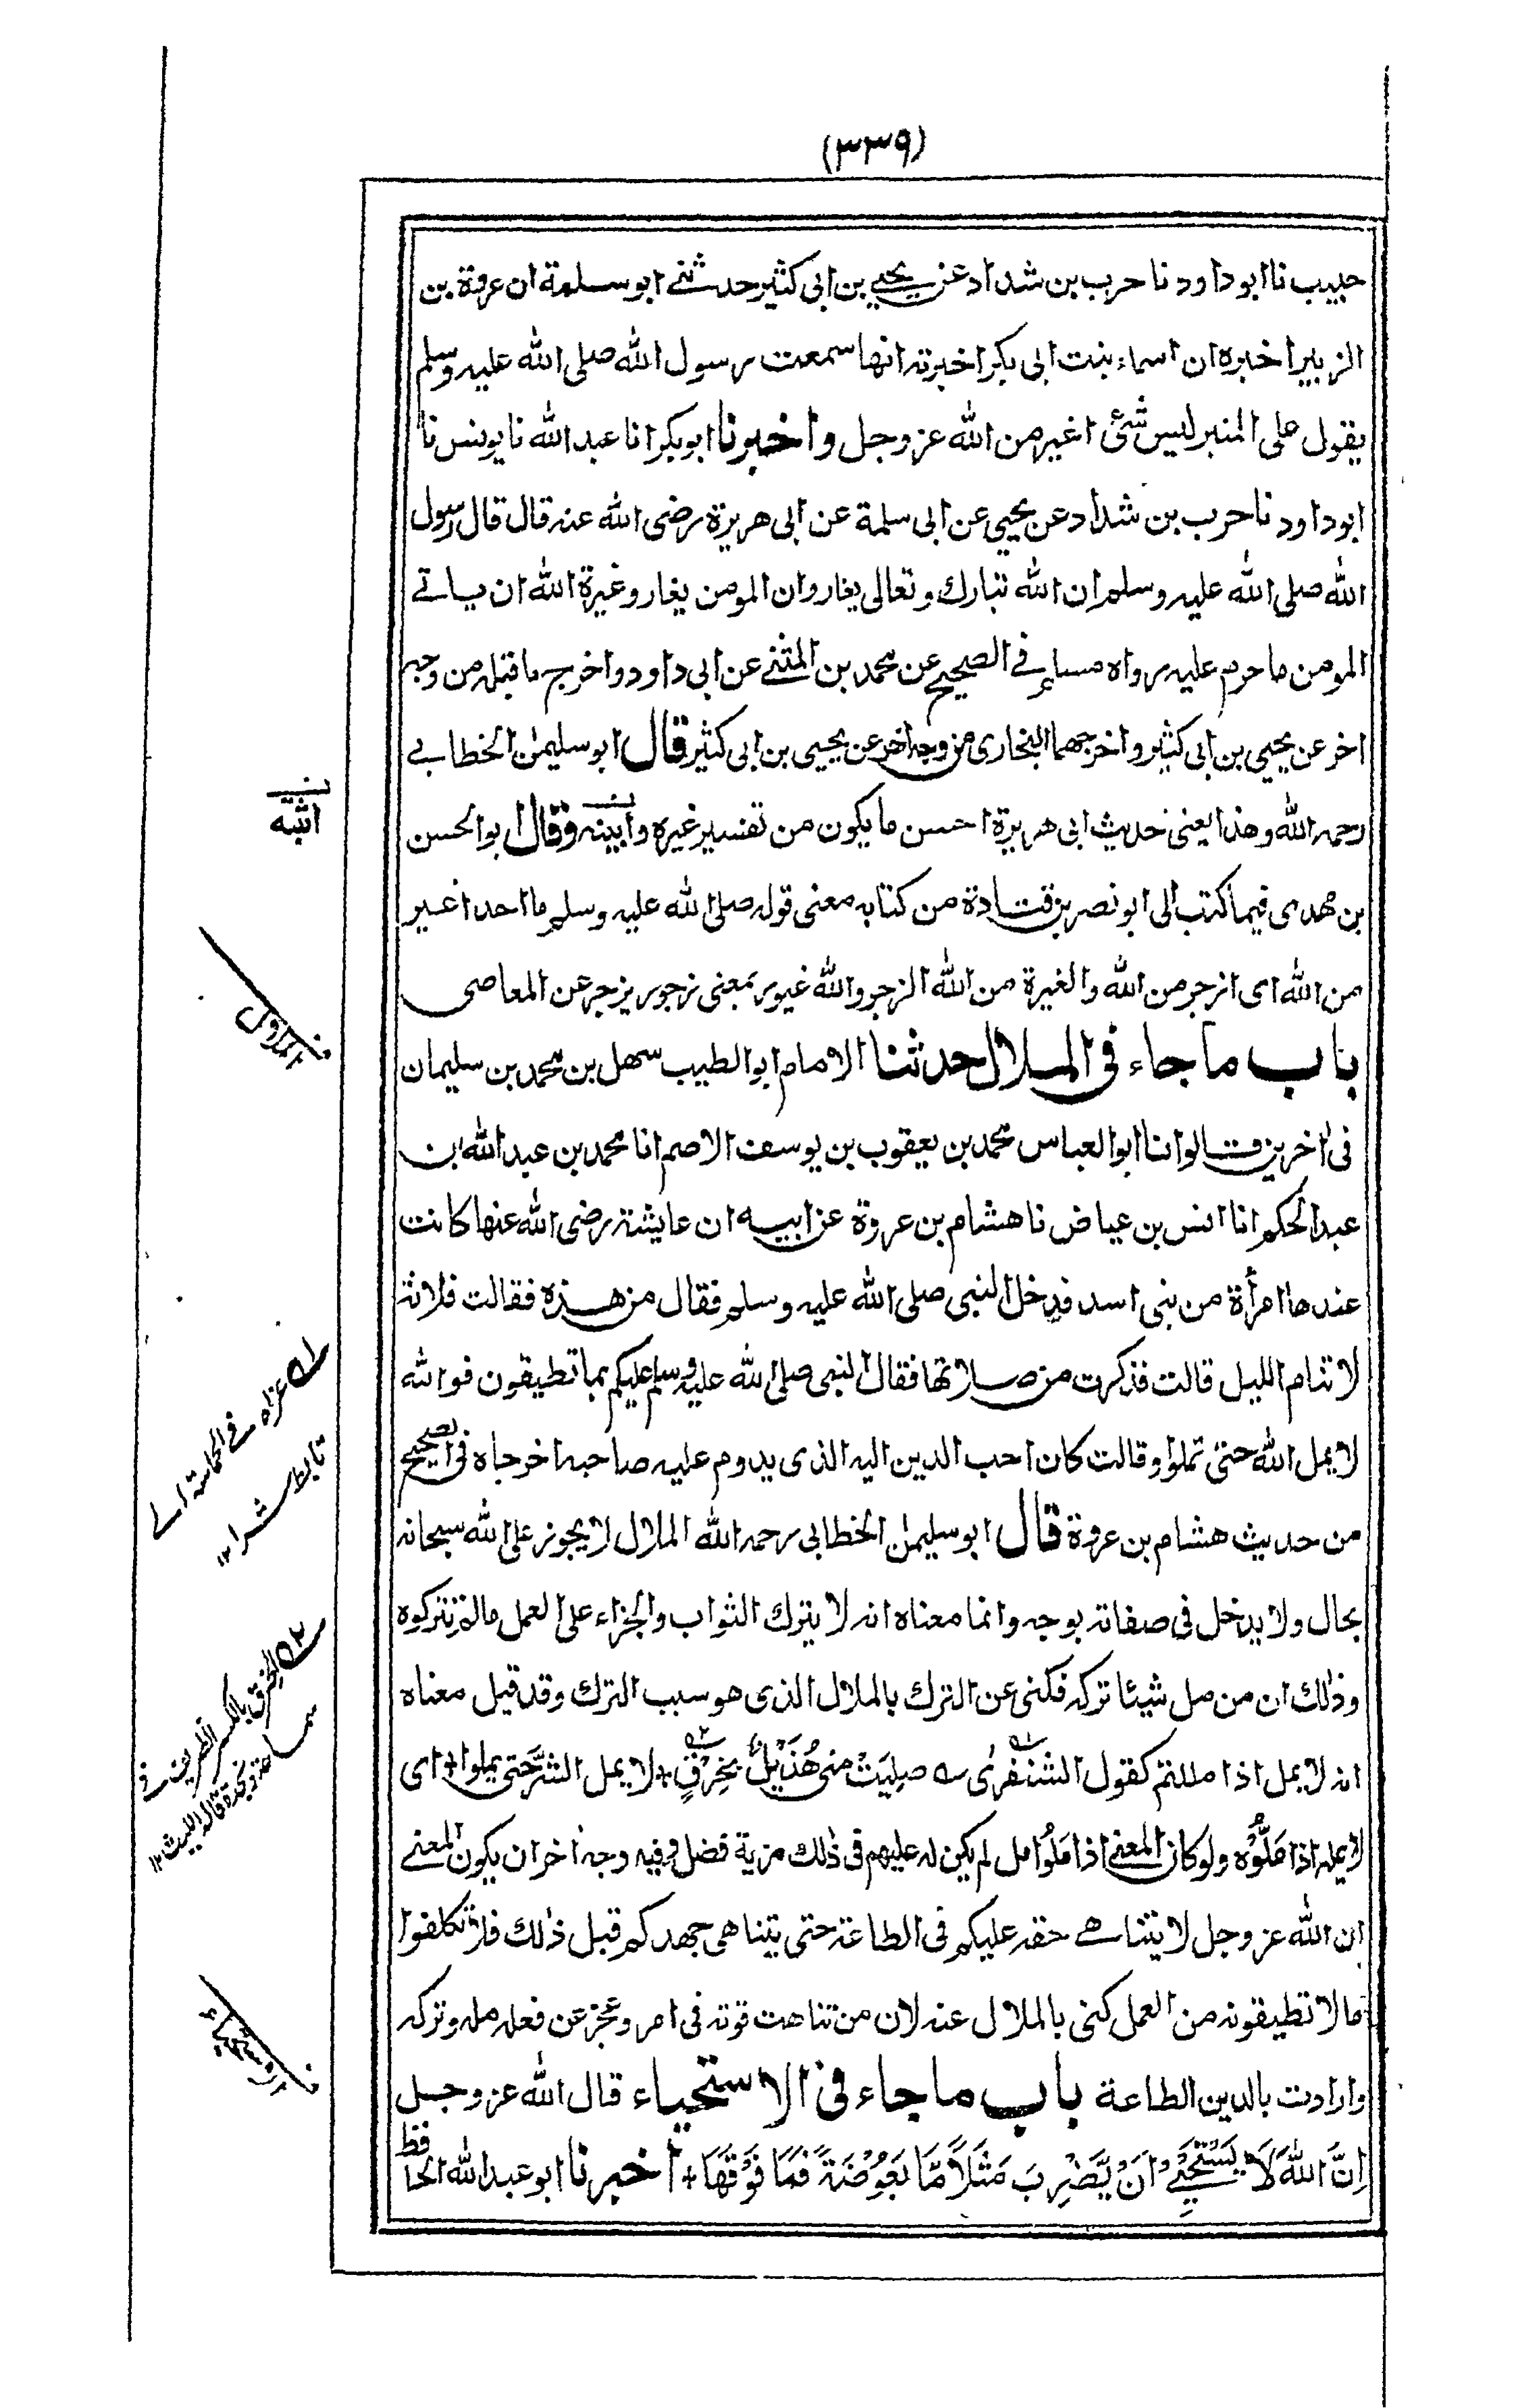 (٣٣٩)
حبيب نا ابو داود نا حرب بن شداد عن يحيى بن ابى كثير حدثنى ابو سلمة ان عروة بن
الزبير اخبره ان اسماء بنت ابى بكر اخبرته انها سمعت رسول الله صلى الله عليه وسلم
يقول على المنبر ليس شئ اغير من الله عز وجل واخبرنا ابو بكر انا عبد الله نا يونس نا
ابو داود نا حرب بن شداد عن يحيى عن ابى سلمة عن ابى هريرة رضى الله عنه قال قال رسول
الله صلى الله عليه وسلم ان الله تبارك وتعالى يغار وان المومن يغار وغيرة الله ان ياتے
المومن ما حرم عليه رواه مسلم فے الصحيح عن محمد بن المثنے عن ابى داود واخرج ما قبله من وجه
اخر عن يحيى بن ابى كثير واخرجهما البخارى من وجه اخر عن يحيى بن ابى كثير قال ابو سليمٰن الخطابے
رحمه الله وهذا يعنى حديث ابى هريرة احسن ما يكون من تفسير غيره وابينه وقال ابو الحسن
بن مهدى فيما كتب الى ابو نصر بن قتادة من كتابه معنى قوله صلى الله عليه وسلم ما احد اغير
من الله اى ازجر من الله والغيرة من الله الزجر والله غيور بمعنى زجور يزجر عن المعاصى
باب ما جاء فى الملال حدثنا الامام ابو الطيب سهل بن محمد بن سليمان
فى اخرين قالوا انا ابو العباس محمد بن يعقوب بن يوسف الاصم انا محمد بن عبد الله بن
عبد الحكم انا انس بن عياض نا هشام بن عروة عن ابيه ان عايشة رضى الله عنها كانت
عندها امرأة من بنى اسد فدخل النبى صلى الله عليه وسلم فقال من هذه فقالت فلانة
لا تنام الليل قالت فذكرت من صلاتها فقال النبى صلى الله عليه وسلم عليكم بما تطيقون فوالله
لا يمل الله حتى تملوا وقالت كان احب الدين اليه الذى يدوم عليه صاحبه اخرجاه فى الصحيح
من حديث هشام بن عروة قال ابو سليمٰن الخطابى رحمه الله الملال لا يجوز على الله سبحانه
بحال ولا يدخل فى صفاته بوجه وانما معناه انه لا يترك الثواب والجزاء على العمل مالم تتركوه
وذٰلك ان من مل شيئا تركه فكنى عن الترك بالملال الذى هو سبب الترك وقد قيل معناه
انه لا يمل اذا مللتم كقول الشنفرٰى صلِيَتْ منى هُذَيْلٌ بِخِرْقٍ + لا يمل الشَّر حتى يملوا + اى
لا يمله اذا مَلُّوْه ولو كان المعنے اذا مَلُوا مل لم يكن له عليهم فى ذٰلك مزية فضل وفيه وجه اخر ان يكون المعنے
ان الله عز وجل لا يتناهے حقه عليكم فى الطاعة حتى يتناهى جهدكم قبل ذٰلك فلا تكلفوا
ما لا تطيقونه من العمل كنى بالملال عنه لان من تناهت قوته فى امر وعجز عن فعله مله وتركه
وارادت بالدين الطاعة باب ما جاء فى الاستحياء قال الله عز وجل
اِنَّ اللهَ لَا يَسْتَحْيٖے اَنْ يَّضْرِبَ مَثَلًا مَّا بَعُوْضَةً فَمَا فَوْقَهَا + اخبرنا ابو عبد الله الحافظ
الملال
له عزاه فے الحماسة الے
تابط شرا ١٢
٢ه الخرق بالكسر الظريف فے
سماحة ونجدة قاله الليث ١٢
الاستحياء